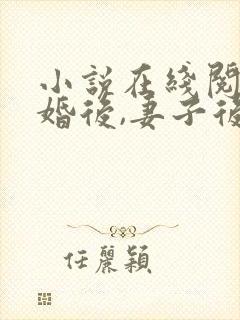 小説在綫閱
婚後,妻子後
任麗穎